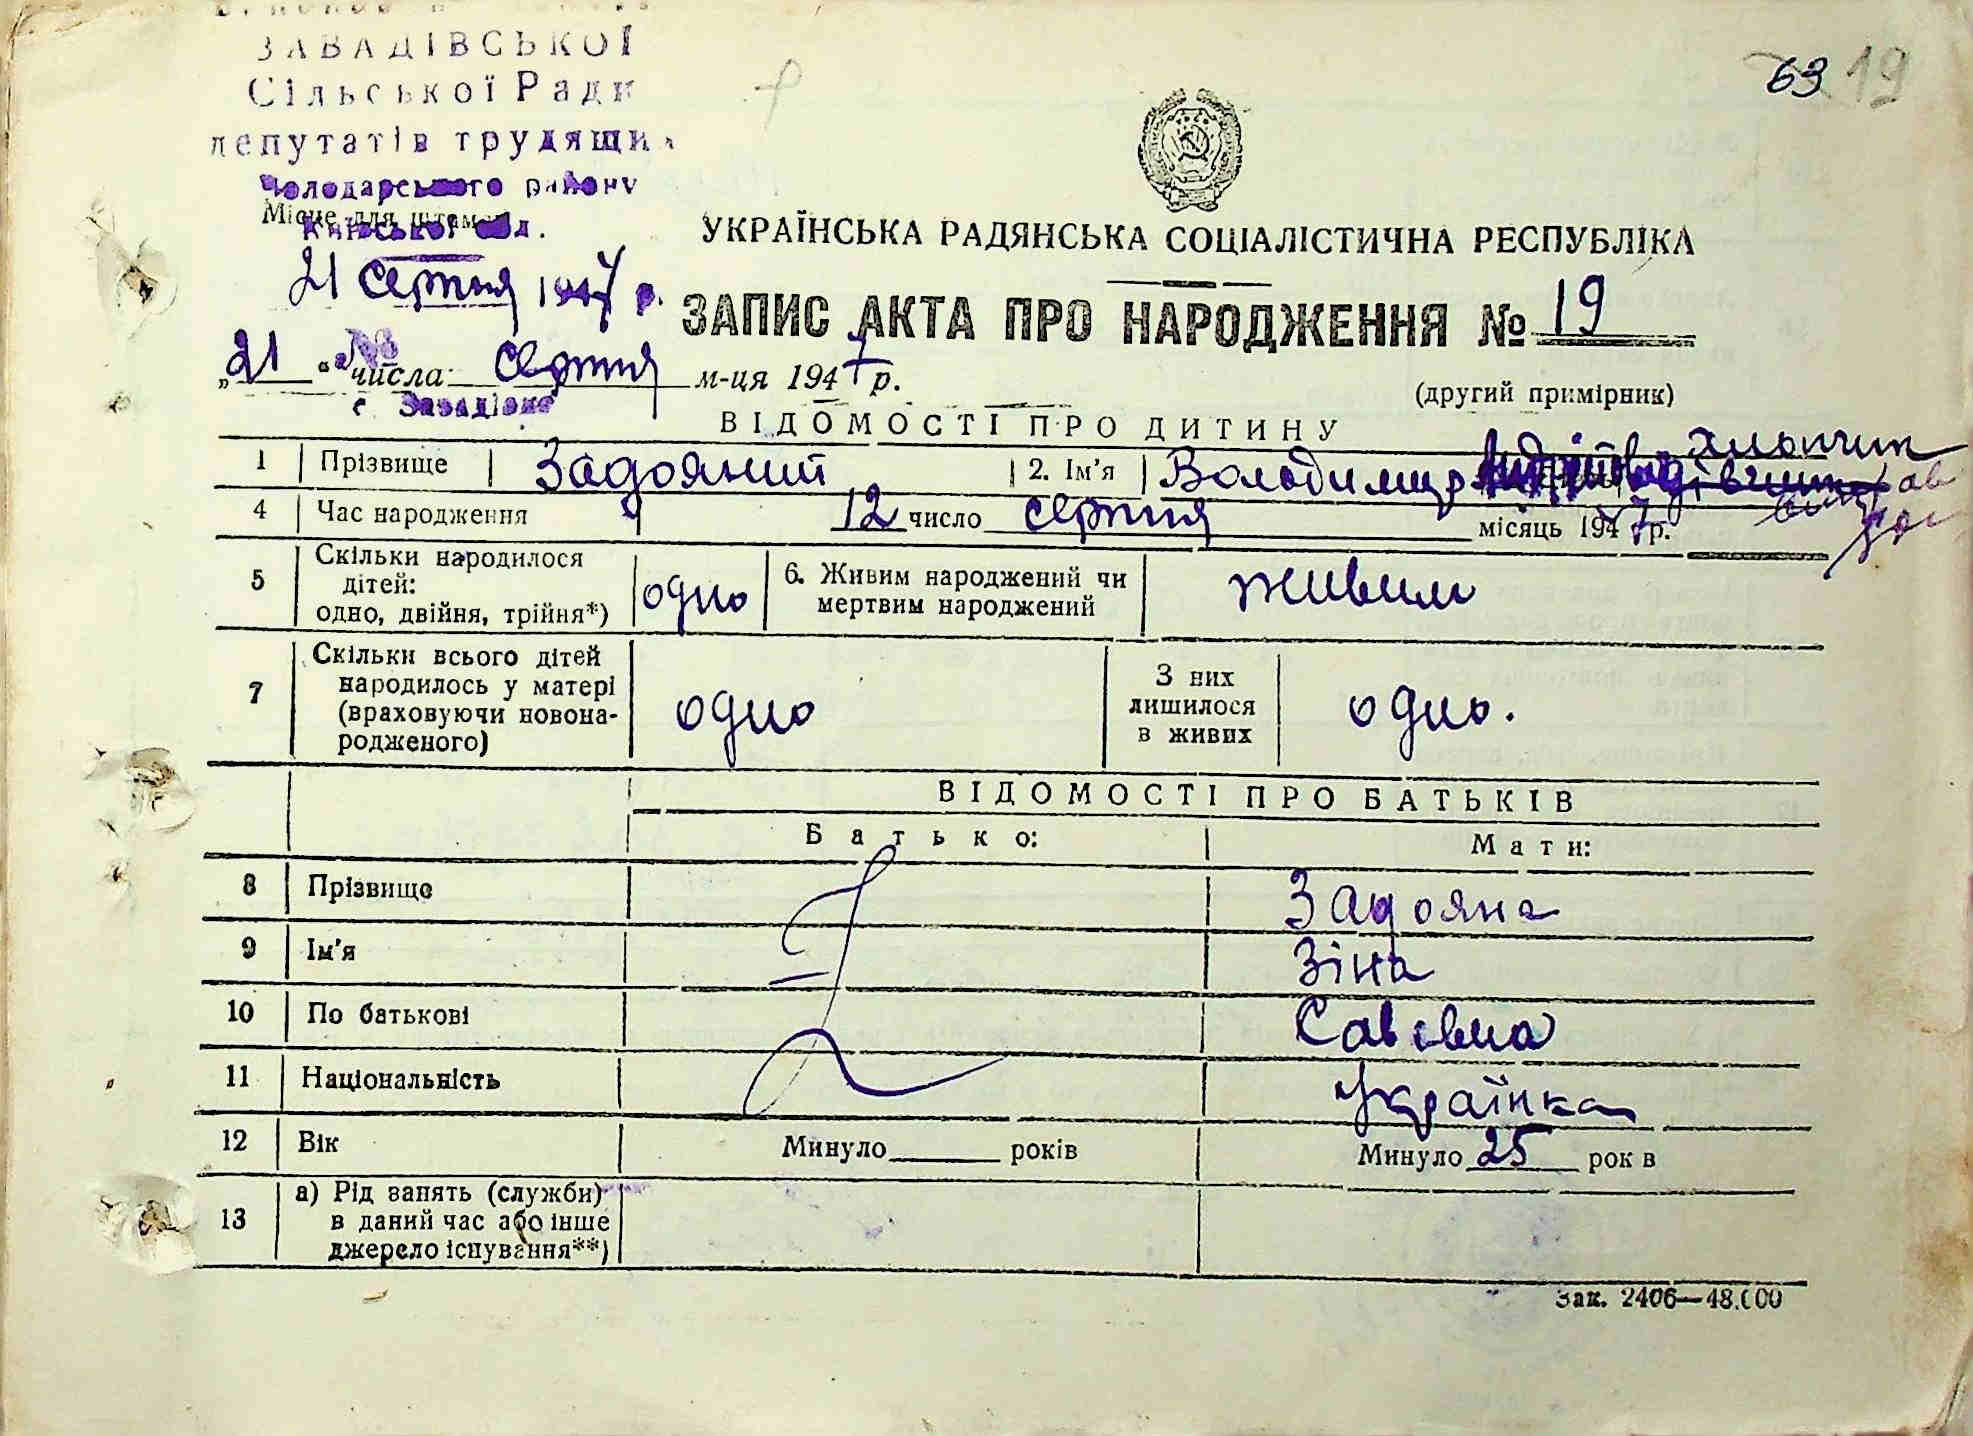 ЗАВАДІВСЬКОЇ
Сільської Ради
депутатів трудящих
Володарського району
Місце для штампа
Київської обл.
63 19
УКРАЇНСЬКА РАДЯНСЬКА СОЦІАЛІСТИЧНА РЕСПУБЛІКА
21 серпня 1947 р.
ЗАПИС АКТА ПРО НАРОДЖЕННЯ № 19
„21“ числа серпня м-ця 1947 р.
(другий примірник)
с. Завадівка
ВІДОМОСТІ ПРО ДИТИНУ
хлопчик
1 Прізвище Задояний 2. Ім'я Володимир
4 Час народження 12 число серпня місяць 1947 р.
5 Скільки народилося дітей: одно, двійня, трійня*) одно 6. Живим народжений чи мертвим народжений живим
7 Скільки всього дітей народилось у матері (враховуючи новонародженого) одно З них лишилося в живих одно.
ВІДОМОСТІ ПРО БАТЬКІВ
Батько: Мати:
8 Прізвище Задояна
9 Ім'я Зіна
10 По батькові Савівна
11 Національність Українка
12 Вік Минуло років Минуло 25 рок в
13 а) Рід занять (служби) в даний час або інше джерело існування**)
Зак. 2406—48.000